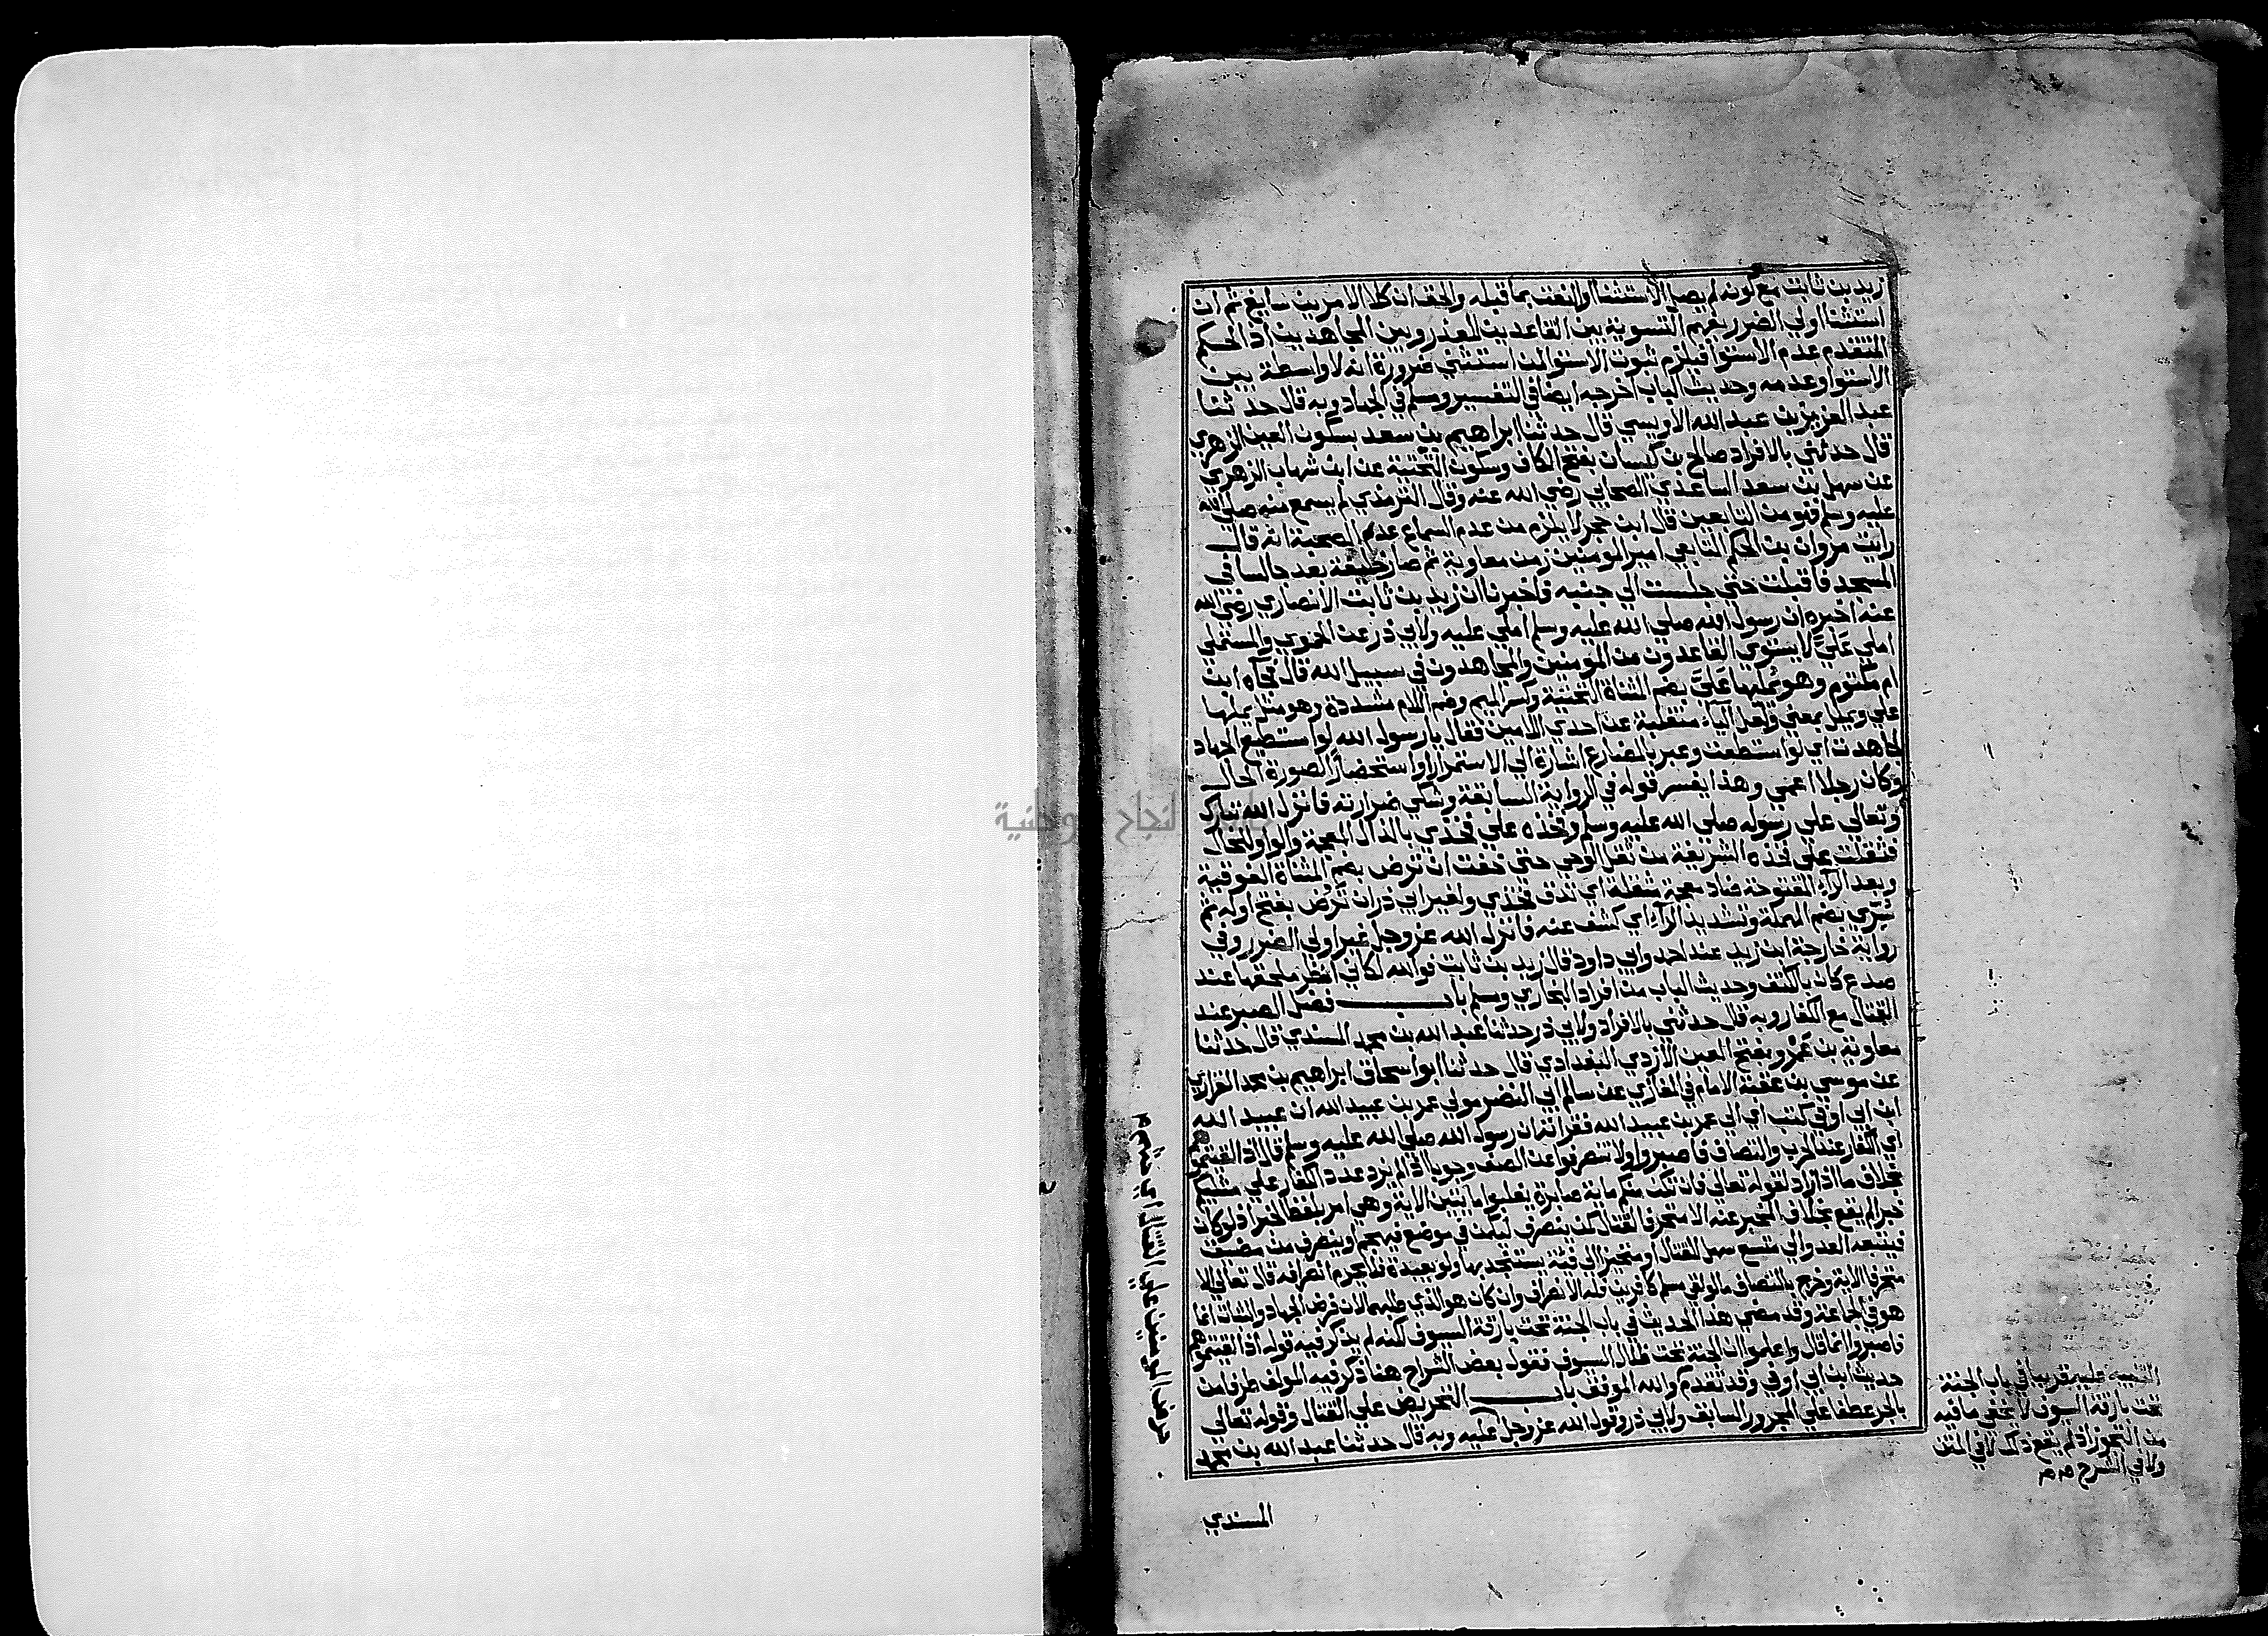 زيد بن ثابت مع كونه لم يصل الاستثنا والنعت بما قبله والحق ان كلا الامرين سايغ ثم ان
استثنا اولي الضرر يفهم التسوية بين القاعدين للعذر وبين المجاهدين اذ الحكم
المتقدم عدم الاستوا فيلزم ثبوت الاستوا لمن استثني ضرورة انه لا واسطة بين
الاستوا وعدمه وحديث الباب اخرجه ايضا في التفسير ومسلم في الجهاد وبه قال حدثنا
عبد العزيز بن عبد الله الاويسي قال حدثنا ابراهيم بن سعد بسكون العين الزهري
قال حدثني بالافراد صالح بن كيسان بفتح الكاف وسكون التحتية عن ابن شهاب الزهري
عن سهل بن سعد الساعدي الصحابي رضي الله عنه وقال الترمذي لم يسمع منه صلي الله
عليه وسلم فهو من التابعين قال ابن حجر لا يلزم من عدم السماع عدم الصحبة انه قال
رايت مروان بن الحكم التابعي امير المومنين زمن معاوية ثم صار خليفة بعد جالسا في
المسجد فاقبلت حتي جلست الي جنبه فاخبرنا ان زيد بن ثابت الانصاري رضي الله
عنه اخبره ان رسول الله صلي الله عليه وسلم املي عليه ولابي ذر عن الحموي والمستملي
املي عَلَيَّ لا يستوي القاعدون من المومنين والمجاهدون في سبيل الله قال فجآه ابن
ام مكتوم وهو يُمِلُّها عَلَيَّ بضم المثناة التحتية وكسر الميم وضم اللام مشددة وهو مثل يمليها
علي ويملي بمعني ولعل اليآء منقلبة عن احدي اللامين فقال يا رسول الله لو استطيع الجهاد
لجاهدت اي لو استطعت وعبر بالمضارع اشارة الي الاستمرار او استحضارا لصورة الحال
وكان رجلا اعمي وهذا يفسر قوله في الرواية السابقة وشكي ضرارته فانزل الله تبارك
وتعالي علي رسوله صلي الله عليه وسلم وفخذه علي فخذي بالذال المعجمة والواو للحال
فثقلت علي فخذه الشريفة من ثقل الوحي حتي خفت ان ترض بضم المثناة الفوقية
وبعد الرآء المفتوحة ضاد معجمة مثقلة اي تدق فخذي ولغير ابي ذر ان تَرُضّ بفتح اوله ثم
سُرِّي بضم المهملة وتشديد الرآء اي كشف عنه فانزل الله عز وجل غير اولي الضرر وفي
رواية خارجة ابن زيد عند احمد وابي داود قال زيد بن ثابت فوالله لكاني انظر ملحقها عند
صدع كان بالكتف وحديث الباب من افراد البخاري ومسلم باب فضل الصبر عند
القتال مع الكفار وبه قال حدثني بالافراد ولابي ذر حدثنا عبد الله بن محمد المسندي قال حدثنا
معاوية بن عَمْرو بفتح العين الازدي البغدادي قال حدثنا ابو اسحاق ابراهيم بن محمد الفزاري
عن موسي بن عقبة الامام في المغازي عن سالم ابي النضر مولي عمر بن عبيد الله ان عبد الله
ابن ابي اوفي كتب اي الي عمر بن عبيد الله فقراته ان رسول الله صلي الله عليه وسلم قال اذا لقيتموهم
اي الكفار عند الحرب والتصاف فاصبروا ولا تنصرفوا عن الصف وجوبا اذا لم يزد عدد الكفار علي مثليكم
بخلاف ما اذا زاد لقوله تعالي فان تكن منكم ماية صابرة يغلبوا مايتين الاية وهي امر بلفظ الخبر اذ لو كان
خبرا لم يقع بخلاف المخبر عنه الا متحرفا لقتال كمن ينصرف ليكمن في موضع فيهجم او ينصرف من مضيق
فيتبعه العدو الي متسع سهل للقتال او متحيزا الي فئة يستنجد بها ولو بعيدة فلا يحرم انصرافه قال تعالي الا
متحرفا الاية وخرج بالتصاف ما لو لقي مسلم كافرين فله الانصراف وان كان هو الذي طلبهما لان فرض الجهاد والثبات انما
هو في الجماعة وقد مضي هذا الحديث في باب الجنة تحت بارقة السيوف لكنه لم يذكر فيه قوله اذا لقيتموهم
فاصبروا انما قال واعلموا ان الجنة تحت ظلال السيوف فقول بعض الشراح هنا ذكر فيه المولف طرفا من
حديث ابن ابي اوفي وقد تقدم والله الموفق باب التحريض علي القتال وقوله تعالي
بالجر عطفا علي المجرور السابق ولابي ذر وقول الله عز وجل عليه وبه قال حدثنا عبد الله بن محمد
المسندي
حرض المومنين علي القتال اي حثهم
التنبيه عليه قريبا في باب الجنة
تحت بارقة السيوف لا يخفي ما فيه
من التجوز اذ لم يقع ذلك لا في المتن
ولا في الشرح